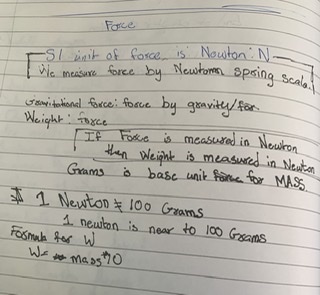 Force
SI unit of force is Newton: N
We measure force by Newtown spring scale.
Gravitational force: force by gravity/for
Weight: force
If Force is measured in Newton
then Weight is measured in Newton
Grams is base unit for MASS.
1 Newton ≠ 100 Grams
1 newton is near to 100 Grams
Formula for W
W= mass*10